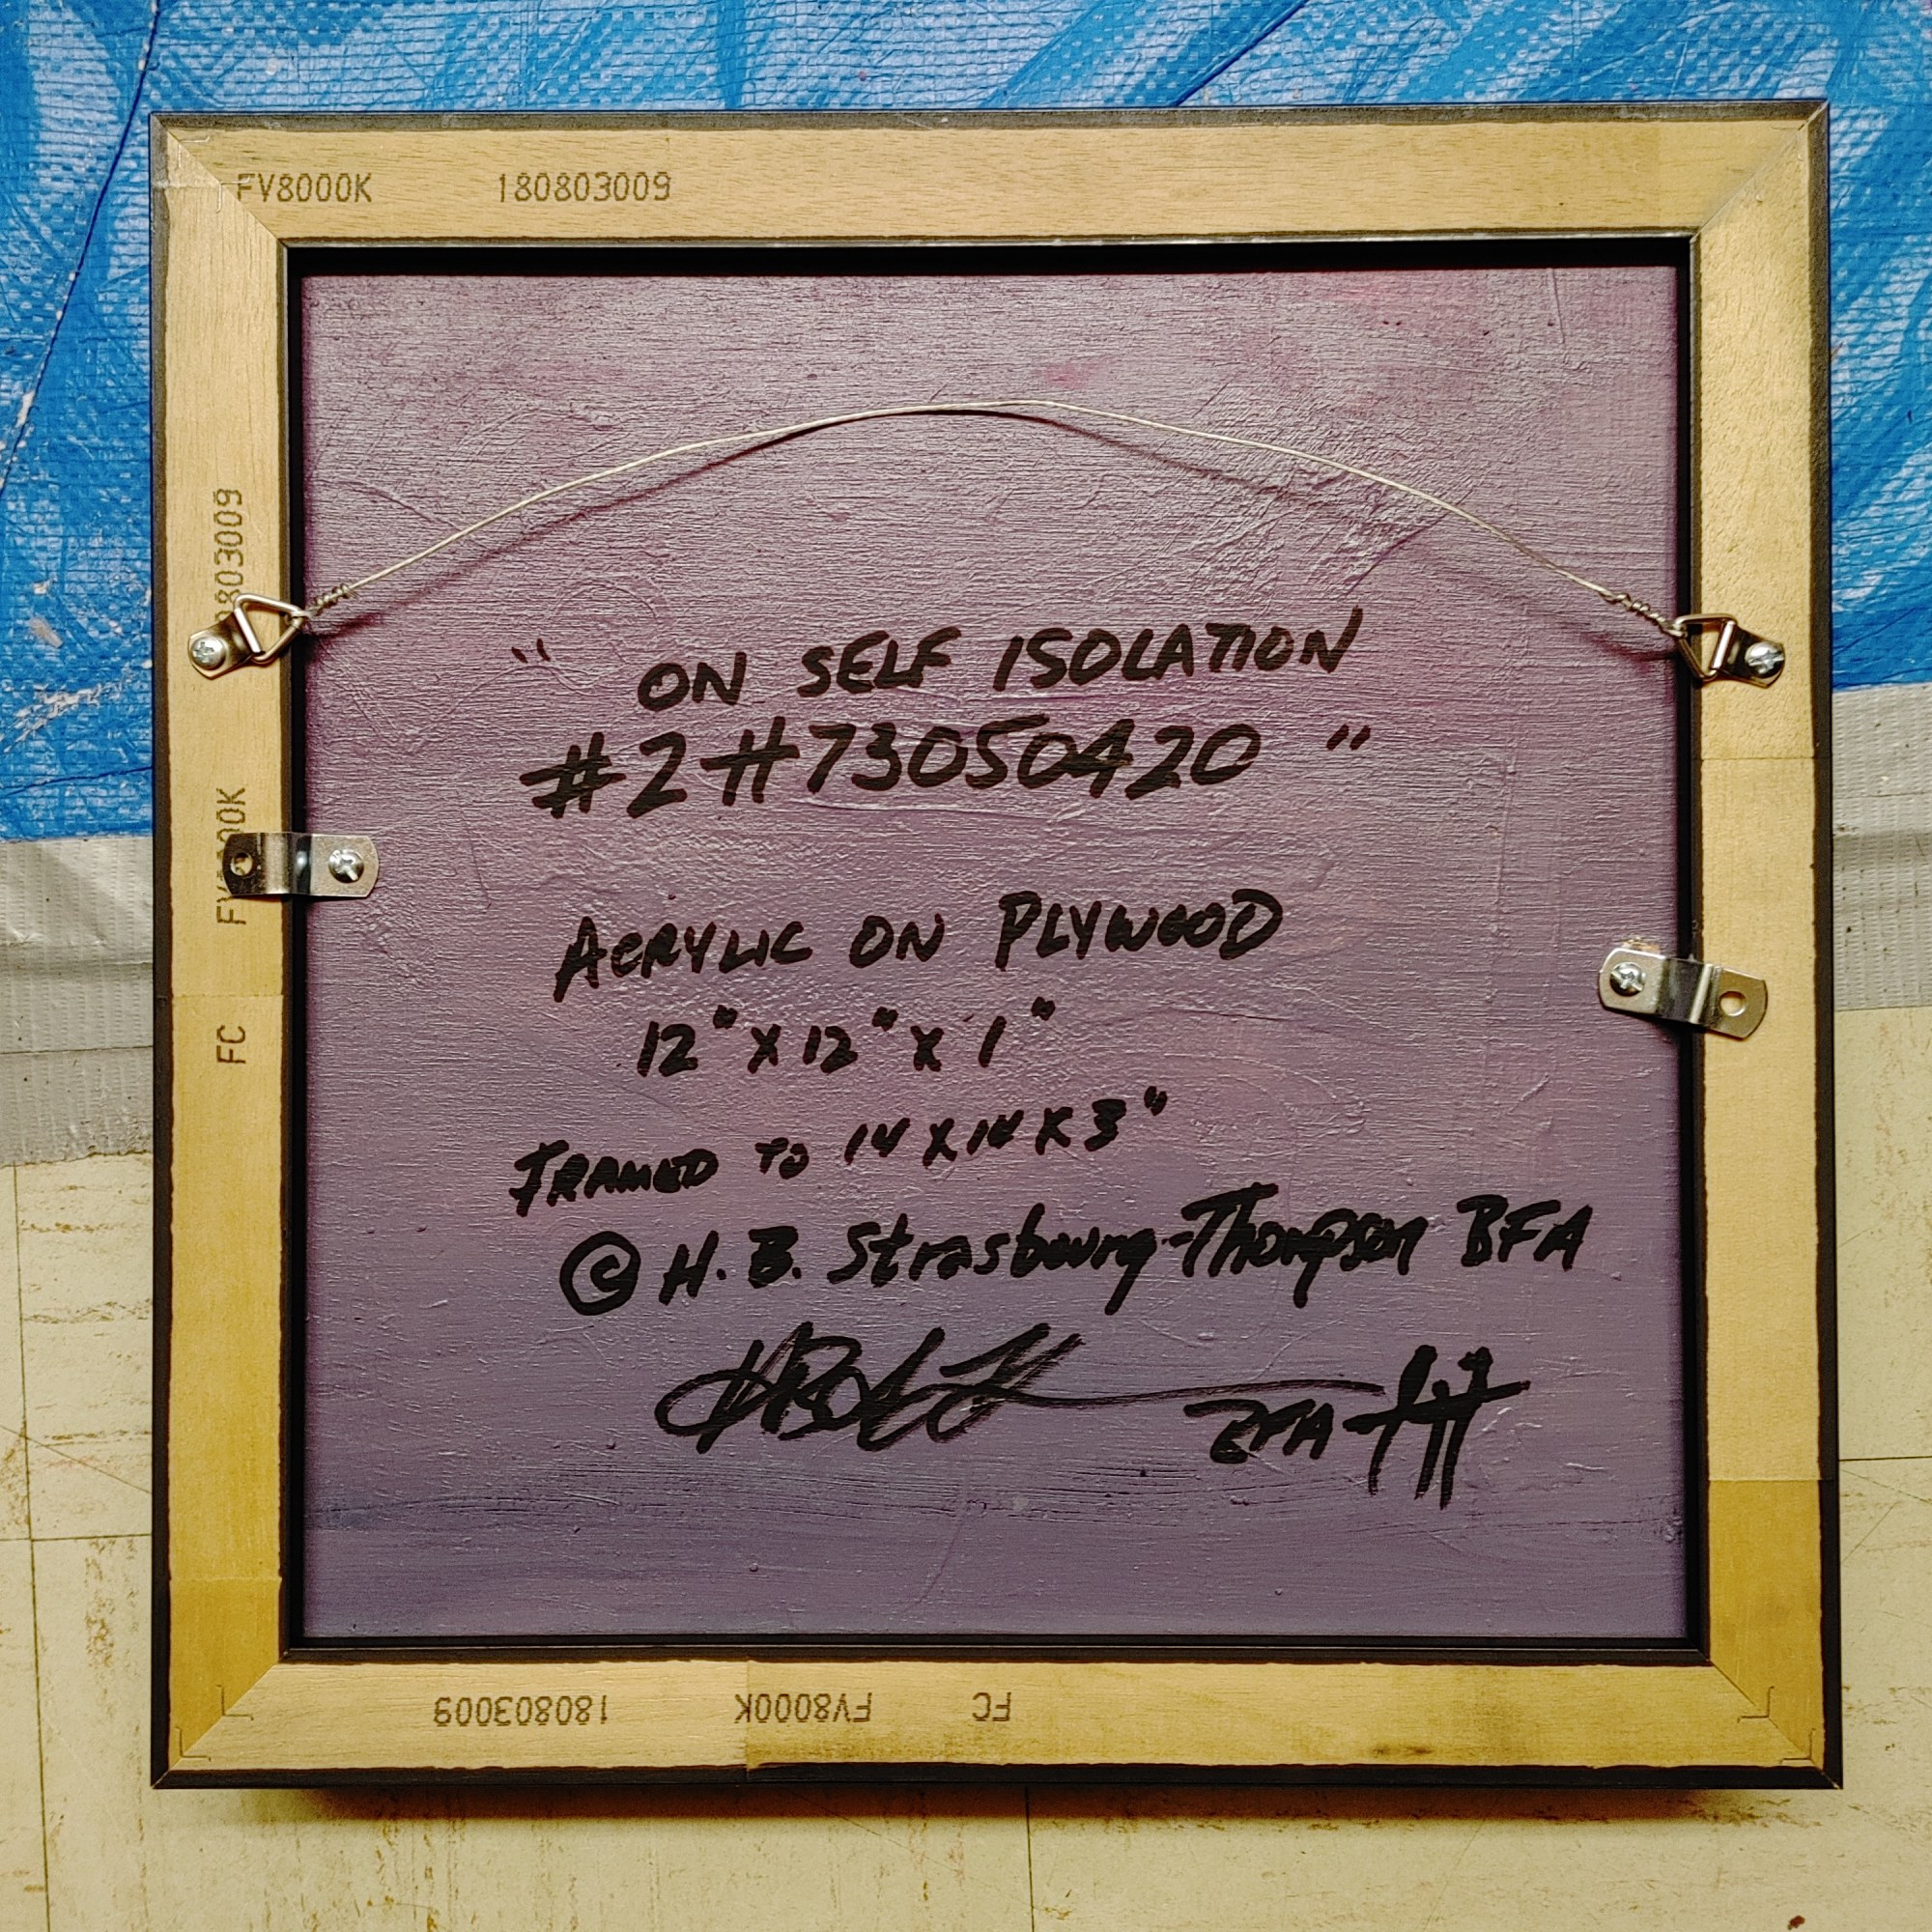 FV8000K 180803009
803009
FC
" ON SELF ISOLATION
#2#73050420 "
ACRYLIC ON PLYWOOD
12" x 12" x 1"
FRAMED TO 14 x 14 x 3"
© H. B. Strasbourg-Thompson BFA
BFA
FC FV8000K 180803009